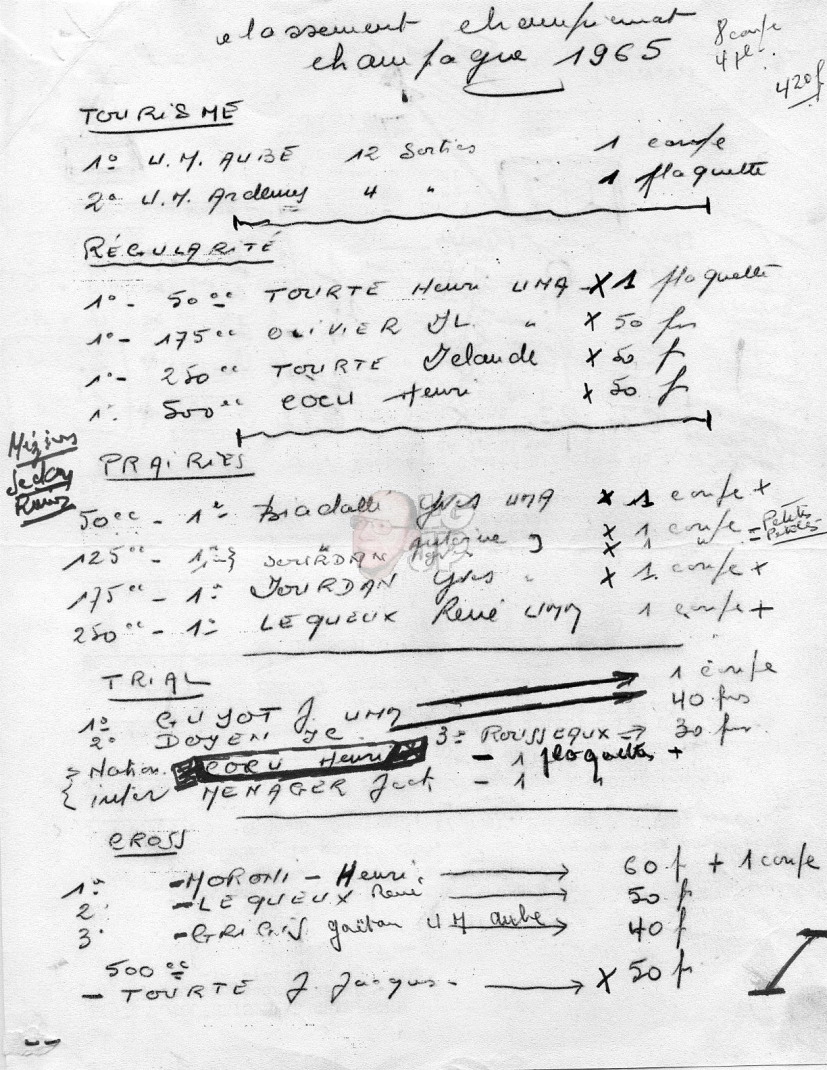 classement championnat
champagne 1965
8 coupe
4 pl.
420 f
TOURISME
1º U.M. AUBE 12 Sorties 1 coupe
2º U.M. Ardennes 4 " 1 plaquette
RÉGULARITÉ
1º - 50cc TOURTE Henri UMA X 1 plaquette
1º - 175cc OLIVIER JL. " X 50 frs
1º - 250cc TOURTE Yolande X 50 f
1º 500cc COCU Henri X 50 f
Mézières
Sedan
Reims
PRAIRIES
50cc - 1º Biadatti Yves UMA X 1 coupe +
125cc - 1º } JOURDAN Antoine } X 1 coupe = Petites
X 1 "
175cc - 1º JOURDAN Yves " X 1 coupe +
250cc - 1º LEQUEUX René UMM 1 coupe +
TRIAL
1º GUYOT J. UMM 1 coupe
2º DOYEN JC. 40 frs
3º ROUSSEAUX → 30 frs
Nation. COCU Henri - 1 plaquettes +
inter MENAGER Jack - 1 "
CROSS
1º - MORONI - Henri 60 f + 1 coupe
2º - LEQUEUX René 50 f
3º - GRIGIS Gaëtan UM aube 40 f
500cc
- TOURTE J. Jacques X 50 f